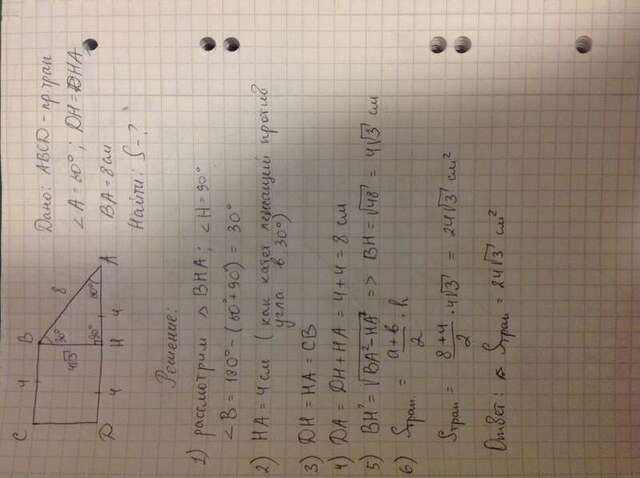 C 4 B
8
30°
4√3
60°
90°
D 4 H 4 A
Дано: ABCD - пр. трап
∠A = 60°; DH = HA
BA = 8 см
Найти: S - ?
Решение:
1) рассмотрим △ BHA; ∠H = 90°
∠B = 180° - (60° + 90°) = 30°
2) HA = 4 см (как катет лежащий против
угла в 30°)
3) DH = HA = CB
4) DA = DH + HA = 4 + 4 = 8 см
5) BH² = √BA² - HA² => BH = √48 = 4√3 см
6) Sтрап. = a + b / 2 · h
Sтрап = 8 + 4 / 2 · 4√3 = 24√3 см²
Ответ: Sтрап = 24√3 см²